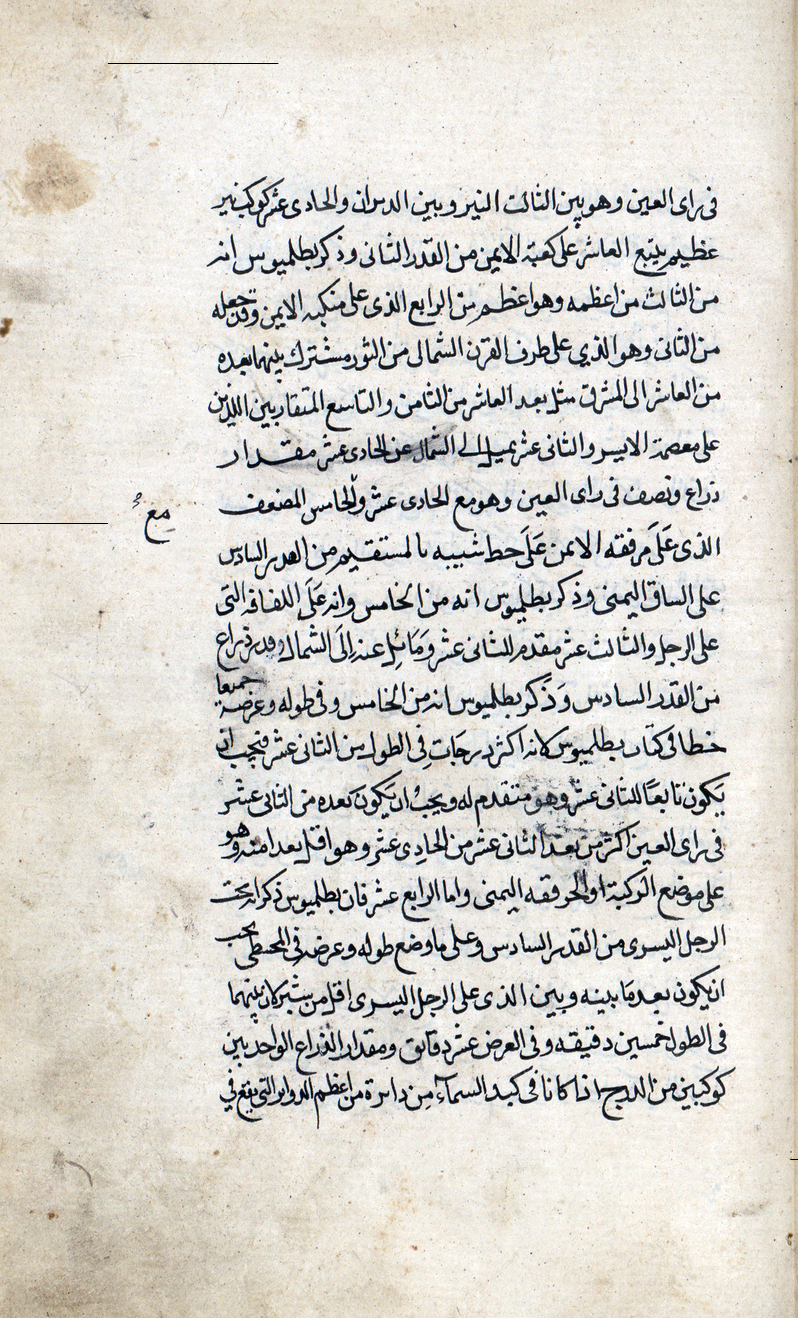 فى راى العين وهو بين الثالث النير وبين الدبران والحادى عشر كوكب نير
عظيم يتبع العاشر على كعبه الايمن من القدر الثانى وذكر بطلميوس انه
من الثالث من اعظمه وهو اعظم من الرابع الذى على منكبه الايمن وقد جعله
من الثانى وهو الذي على طرف القرن الشمالى من الثور مشترك بينهما بعده
من العاشر الى المشرق مثل بعد العاشر من الثامن والتاسع المتقاربين اللذين
على معصمة الايسر والثانى عشر يميل الى الشمال عن الحادى عشر مقدار
ذراع ونصف فى راى العين وهو مع الحادى عشر والخامس المضعف
مع
الذى عَلَى مرفقه الايمن عَلَى خط شبيه بالمستقيم من القدر السادس
على الساق اليمنى وذكر بطلميوس انه من الخامس وانه عَلَى اللفافه التى
على الرجل والثالث عشر مقدم للثانى عشر وَمَائِل عنه إِلَى الشمال قدر ذراع
من القدر السادس وَذكر بطلميوس انه من الخامس وفى طوله وعرضه جميعا
خطا فى كتاب بطلميوس لانه اكثر درجات فى الطول من الثانى عشر فيجب ان
يَكون تابعًا للثانى عشر وهو متقدم له ويجب ان يَكون بعده من الثانى عشر
فى راى العين اكثر من بعد الثانى عشر من الحادى عشر وهو اقل بعدا منه وهو
على موضع الركبة اليمنى واما الرابع عشر فان بطلميوس ذكر انه تحت
الرجل اليسرى من القدر السادس وعلى ما وضع طوله وعرضه فى المجسطى يجب
ان يكون بعد مَا بينه وبين الذى على الرجل اليسرى اقل من شبر لان بينهما
فى الطول خمسين دقيقه وفى العرض عشر دقائق ومقدار الذراع الواحد بين
كوكبين من الدرج اذا كانا فى كبد السماء من دائرة من اعظم الدوائر التى يقع في